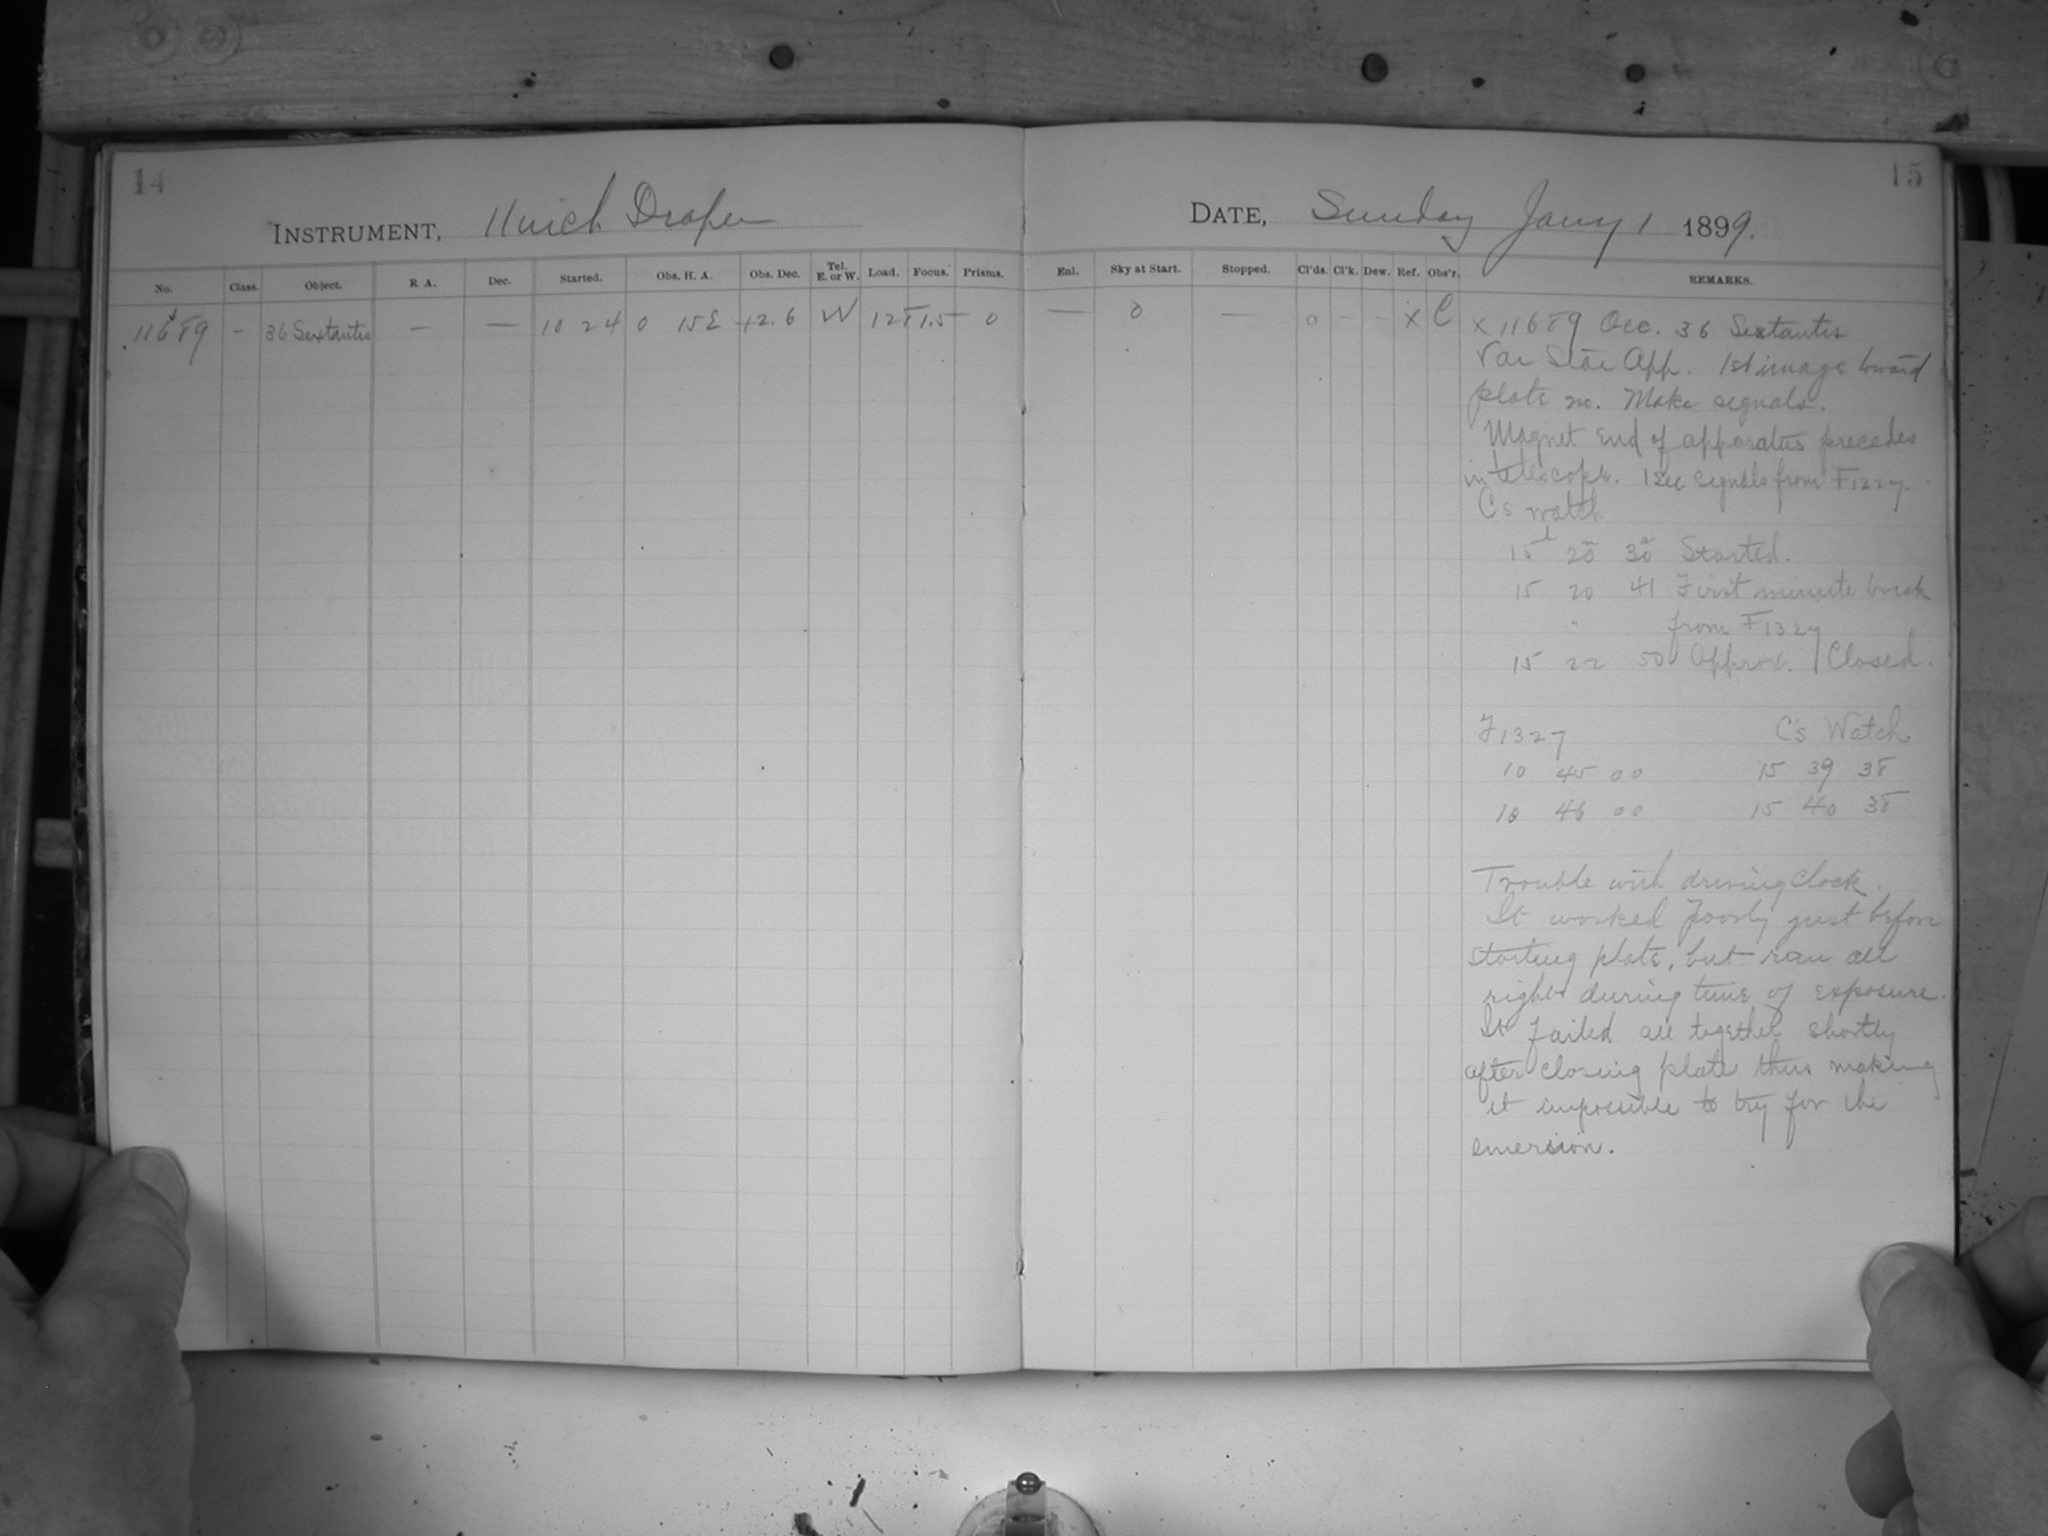 14
INSTRUMENT, 11 inch Draper
No. Class. Object. R A. Dec. Started. Obs. H. A. Obs. Dec. Tel. E. or W. Load. Focus. Prisms.
11689 – 36 Sextantis — — 10 24 0 15E +2.6 W 128 11.5 0
15
DATE, Sunday Jany 1 1899.
Enl. Sky at Start. Stopped. Cl'ds. Cl'k. Dew. Ref. Obs'r. REMARKS.
— 0 — 0 - - x C x 11689 Occ. 36 Sextantis
Var Star App. 1st image toward
plate no. Make signals.
Magnet end of apparatus precedes
in telescope. 1 sec signals from F1327.
C's watch
15h 20m 30s Started.
15 20 41 First minute break
from F1327
15 22 50 Approx. Closed.
F1327 C's Watch
10 45 00 15 39 38
10 46 00 15 40 38
Trouble with driving clock.
It worked poorly just before
starting plate, but ran all
right during time of exposure.
It failed all together shortly
after closing plate thus making
it impossible to try for the
emersion.